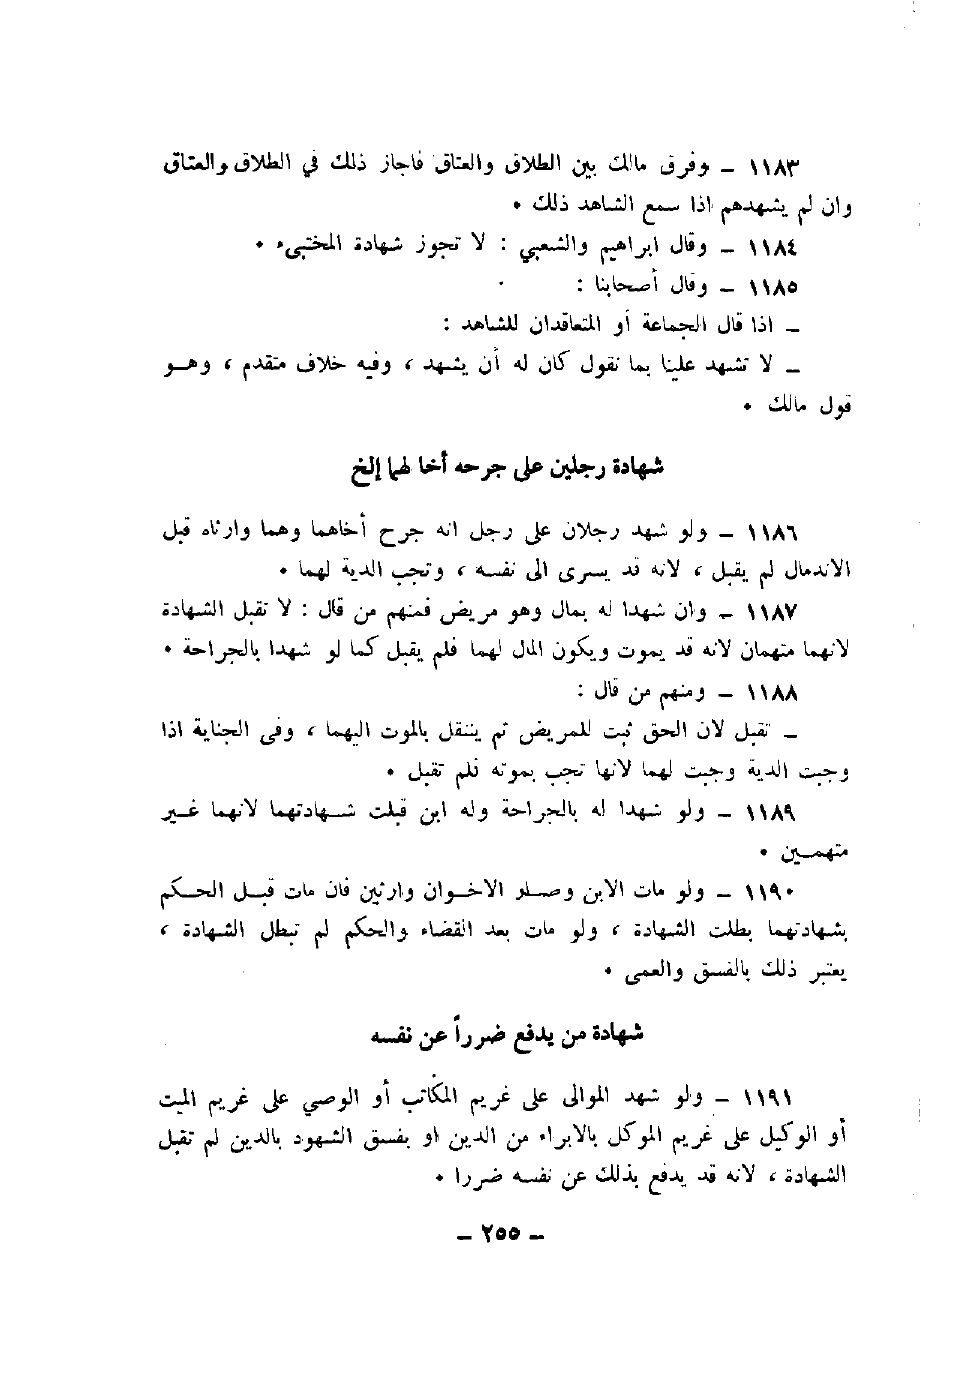 ١١٨٣ ــ وفرق مالك بين الطلاق والعتاق فاجاز ذلك في الطلاق والعتاق
وان لم يشهدهم اذا سمع الشاهد ذلك ٠
١١٨٤ ــ وقال ابراهيم والشعبي : لا تجوز شهادة المختبىء ٠
١١٨٥ ــ وقال أصحابنا :
ــ اذا قال الجماعة أو المتعاقدان للشاهد :
ــ لا تشهد علينا بما نقول كان له أن يشهد ، وفيه خلاف متقدم ، وهــو
قول مالك ٠
شهادة رجلين على جرحه أخا لهما إلخ
١١٨٦ ــ ولو شهد رجلان على رجل انه جرح أخاهما وهما وارثاه قبل
الاندمال لم يقبل ، لانه قد يسرى الى نفسه ، وتجب الدية لهما ٠
١١٨٧ ــ وان شهدا له بمال وهو مريض فمنهم من قال : لا تقبل الشهادة
لانهما متهمان لانه قد يموت ويكون المال لهما فلم يقبل كما لو شهدا بالجراحة ٠
١١٨٨ ــ ومنهم من قال :
ــ تقبل لان الحق ثبت للمريض ثم ينتقل بالموت اليهما ، وفى الجناية اذا
وجبت الدية وجبت لهما لانها تجب بموته فلم تقبل ٠
١١٨٩ ــ ولو شهدا له بالجراحة وله ابن قبلت شــهادتهما لانهما غــير
متهمــين ٠
١١٩٠ ــ ولو مات الابن وصــلو الاخــوان وارثين فان مات قبــل الحــكم
بشهادتهما بطلت الشهادة ، ولو مات بعد القضاء والحكم لم تبطل الشهادة ،
يعتبر ذلك بالفسق والعمى ٠
شهادة من يدفع ضرراً عن نفسه
١١٩١ ــ ولو شهد الموالى على غريم المكاتب أو الوصي على غريم الميت
أو الوكيل على غريم الموكل بالابراء من الدين او بفسق الشهود بالدين لم تقبل
الشهادة ، لانه قد يدفع بذلك عن نفسه ضررا ٠
ــ ٢٥٥ ــ